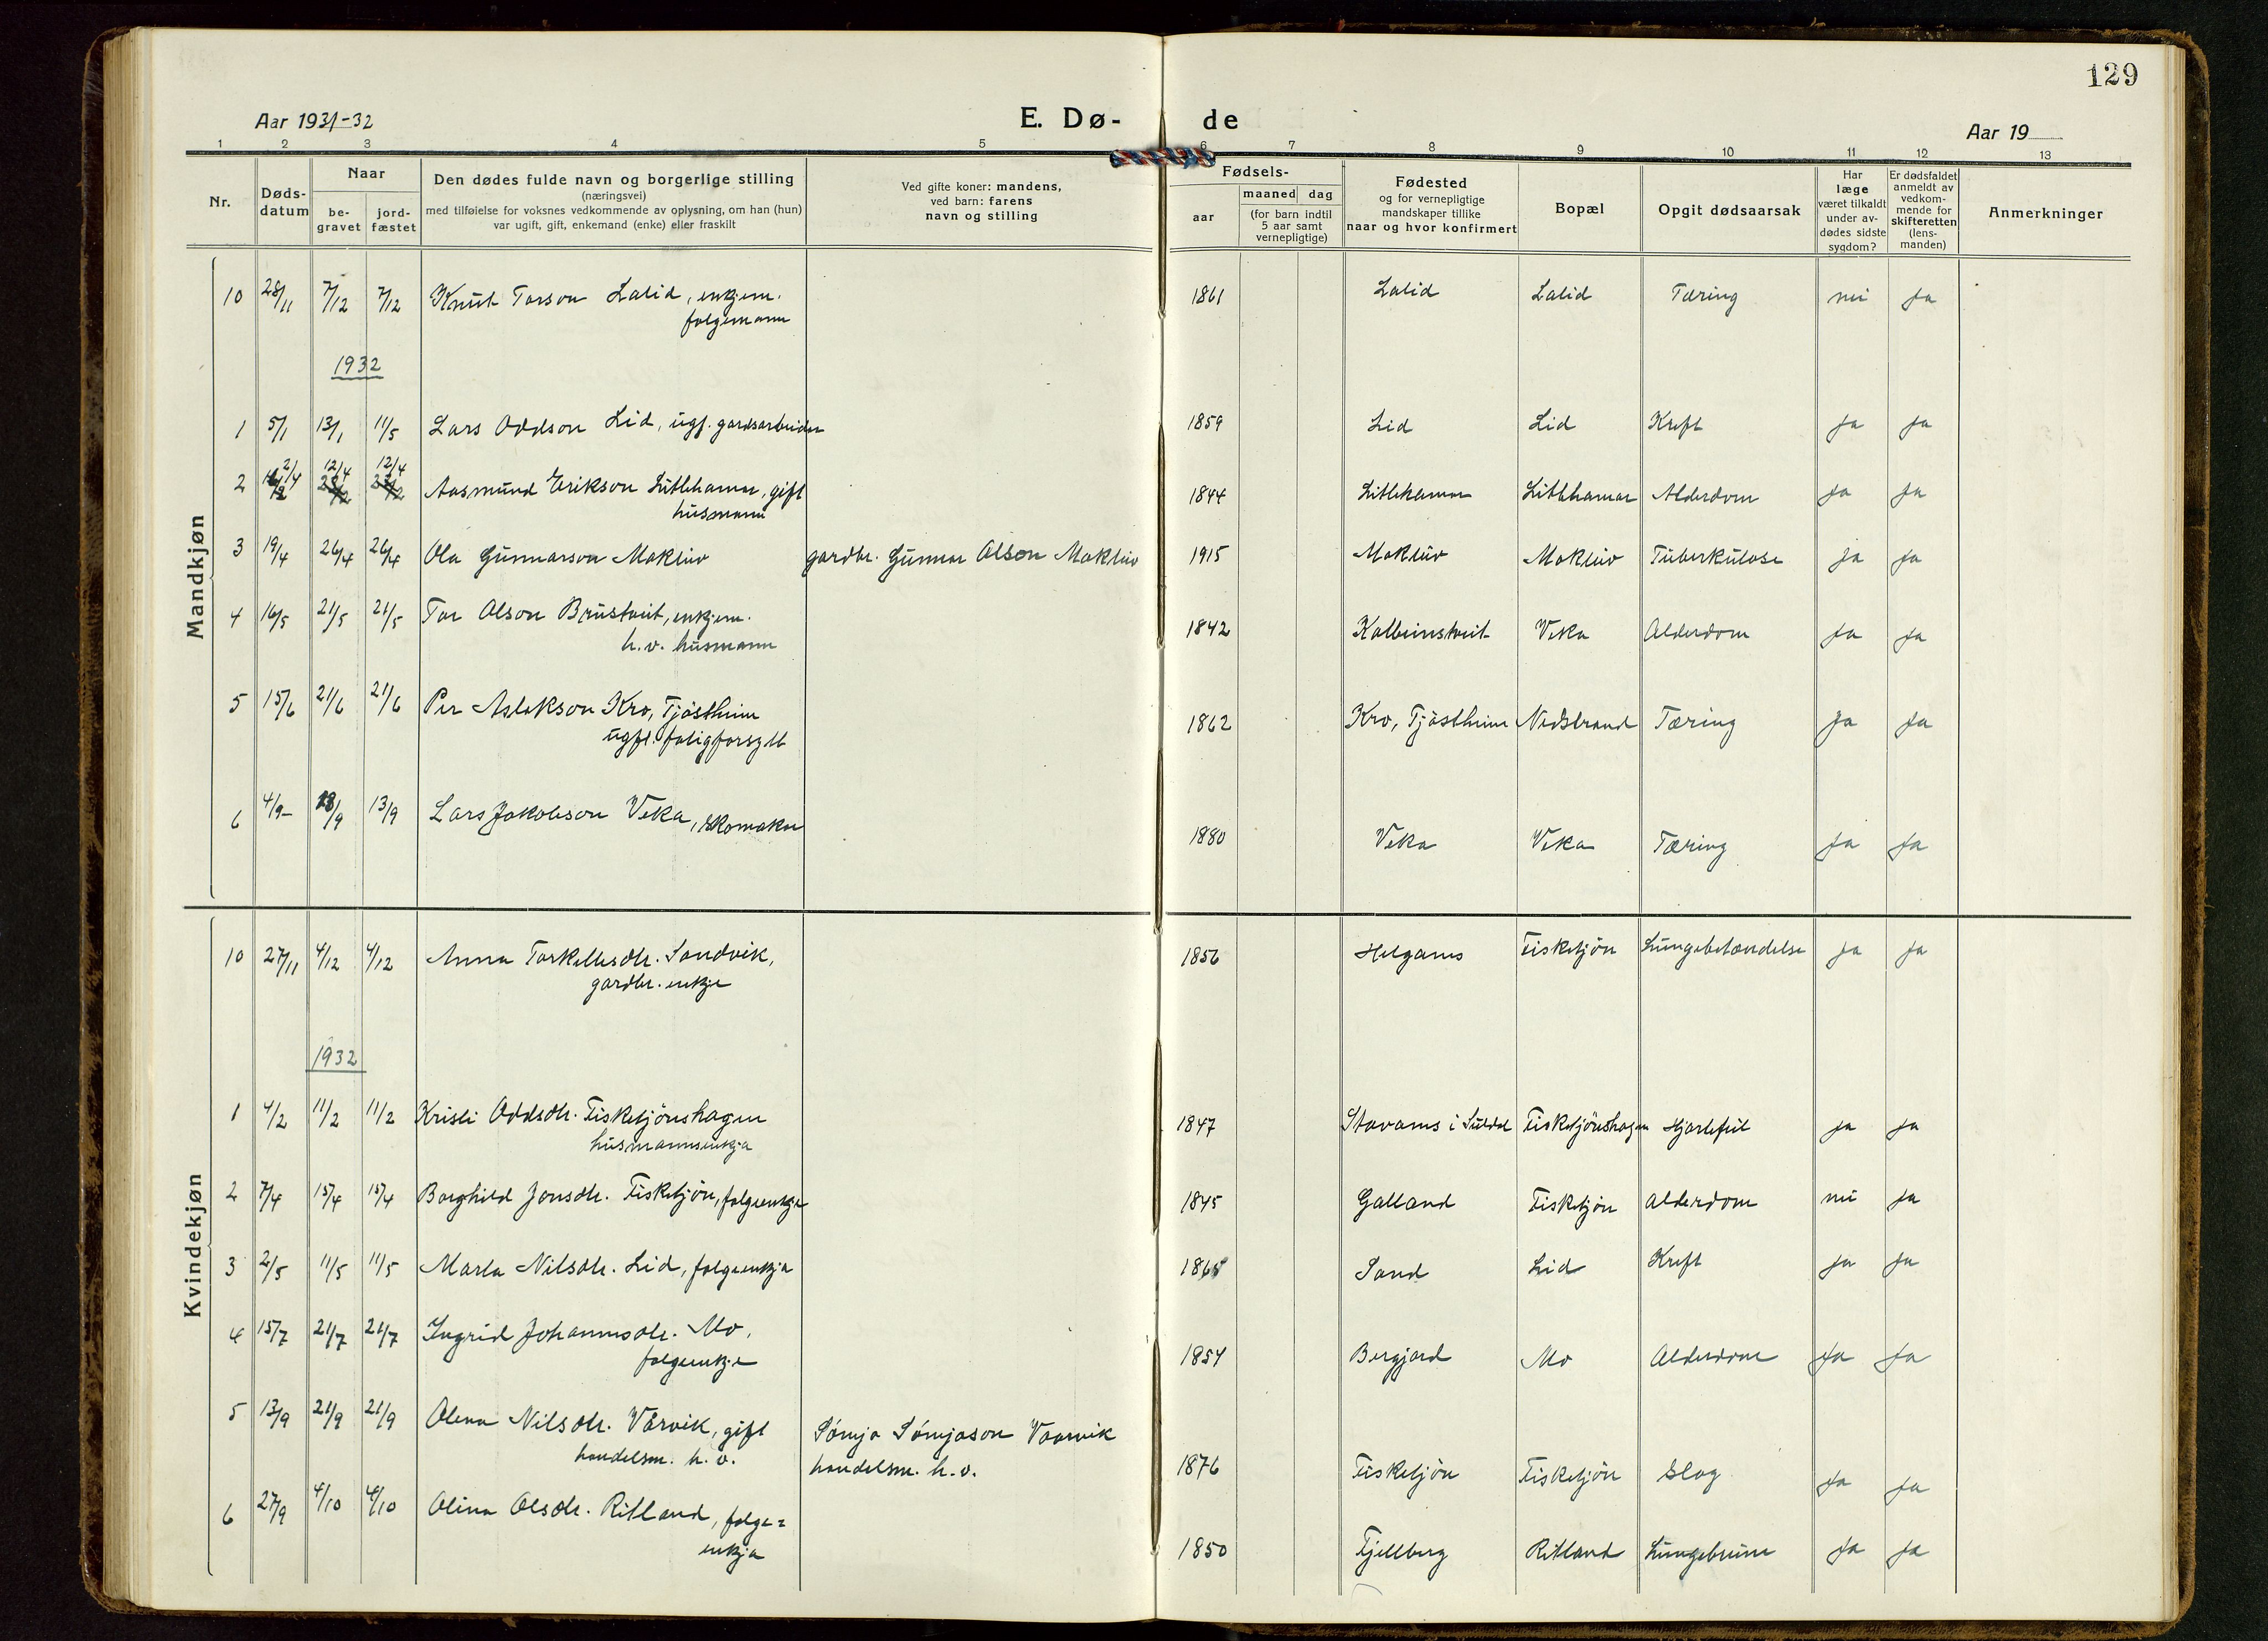 129
Aar 1931-32
E. Dø- de
Aar 19
1 2 3 4 5 6 7 8 9 10 11 12 13
Nr.
Døds-
datum
Naar
be-
gravet
jord-
fæstet
Den dødes fulde navn og borgerlige stilling
(næringsvei)
med tilføielse for voksnes vedkommende av oplysning, om han (hun)
var ugift, gift, enkemand (enke) eller fraskilt
Ved gifte koner: mandens,
ved barn: farens
navn og stilling
Fødsels-
aar
maaned dag
(for barn indtil
5 aar samt
vernepligtige)
Fødested
og for vernepligtige
mandskaper tillike
naar og hvor konfirmert
Bopæl
Opgit dødsaarsak
Har
læge
været tilkaldt
under av-
dødes sidste
sygdom?
Er dødsfaldet
anmeldt av
vedkom-
mende for
skifteretten
(lens-
manden)
Anmerkninger
Mandkjøn
10 28/11 7/12 7/12 Knut Torson Lalid, enkjem. 1861 Lalid Lalid Tæring nei Ja
folgemann
1932
1 5/1 13/1 11/5 Lars Oddson Lid, ugf. gardsarbeider 1859 Lid Lid Kreft Ja Ja
2 2/4 12/4 12/4 Aasmund Erikson Litlehamar, gift 1844 Litlehamar Litlehamar Alderdom Ja Ja
husmann
3 19/4 26/4 26/4 Ola Gunnarson Mokleiv gardbr. Gunnar Olson Mokleiv 1915 Mokleiv Mokleiv Tuberkulose Ja Ja
4 16/5 21/5 21/5 Tor Olson Brustveit, enkjem. 1842 Kolbeinstveit Veka Alderdom Ja Ja
h.v. husmann
5 15/6 21/6 21/6 Per Aslakson Kro, Tjøstheim 1862 Kro, Tjøstheim Nedstrand Tæring Ja Ja
ugft. fatigforsytt
6 4/9 13/9 13/9 Lars Jakobson Veka, skomakar 1880 Veka Veka Tæring Ja Ja
Kvindekjøn
10 27/11 4/12 4/12 Anna Torkellsdtr. Sandvik, 1856 Helganes Fisketjøn Lungebetændelse Ja Ja
gardbr. enkje
1932
1 4/2 11/2 11/2 Kristi Oddsdtr. Fisketjønshagen 1847 Stovanes i Suldal Fisketjønshagen Hjartefeil Ja Ja
husmannsenkja
2 7/4 15/4 15/4 Borghild Jonsdtr. Fisketjøn, folgeenkje 1845 Galland Fisketjøn Alderdom nei Ja
3 2/5 11/5 11/5 Marta Nilsdtr. Lid, folgeenkja 1865 Sand Lid Kreft Ja Ja
4 15/7 21/7 21/7 Ingrid Johannesdtr. Mo, 1854 Bergjord Mo Alderdom Ja Ja
folgeenkje
5 13/9 21/9 21/9 Olena Nilsdtr. Vårvik, gift Sømja Sømjason Vaarvik 1876 Fisketjøn Fisketjøn Slag Ja Ja
handelsm. h.v. handelsm. h.v.
6 27/9 4/10 4/10 Olina Olsdtr. Ritland, folge= 1850 Fjellberg Ritland Lungebrune Ja Ja
enkja